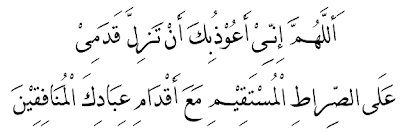 أَللَّهُمَّ إِنِّىْ أَعُوْذُبِكَ أَنْ تَزِلَّ قَدَمِىْ
عَلَى الصِّرَاطِ الْمُسْتَقِيْمِ مَعَ أَقْدَامِ عِبَادِكَ الْمُنَافِقِيْنَ